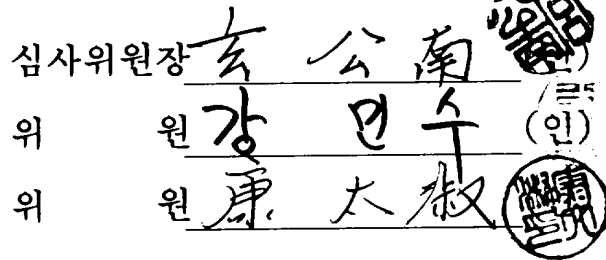 심사위원장 玄 公 南 (인)
위 원 강 민 수 (인)
위 원 康 太 淑